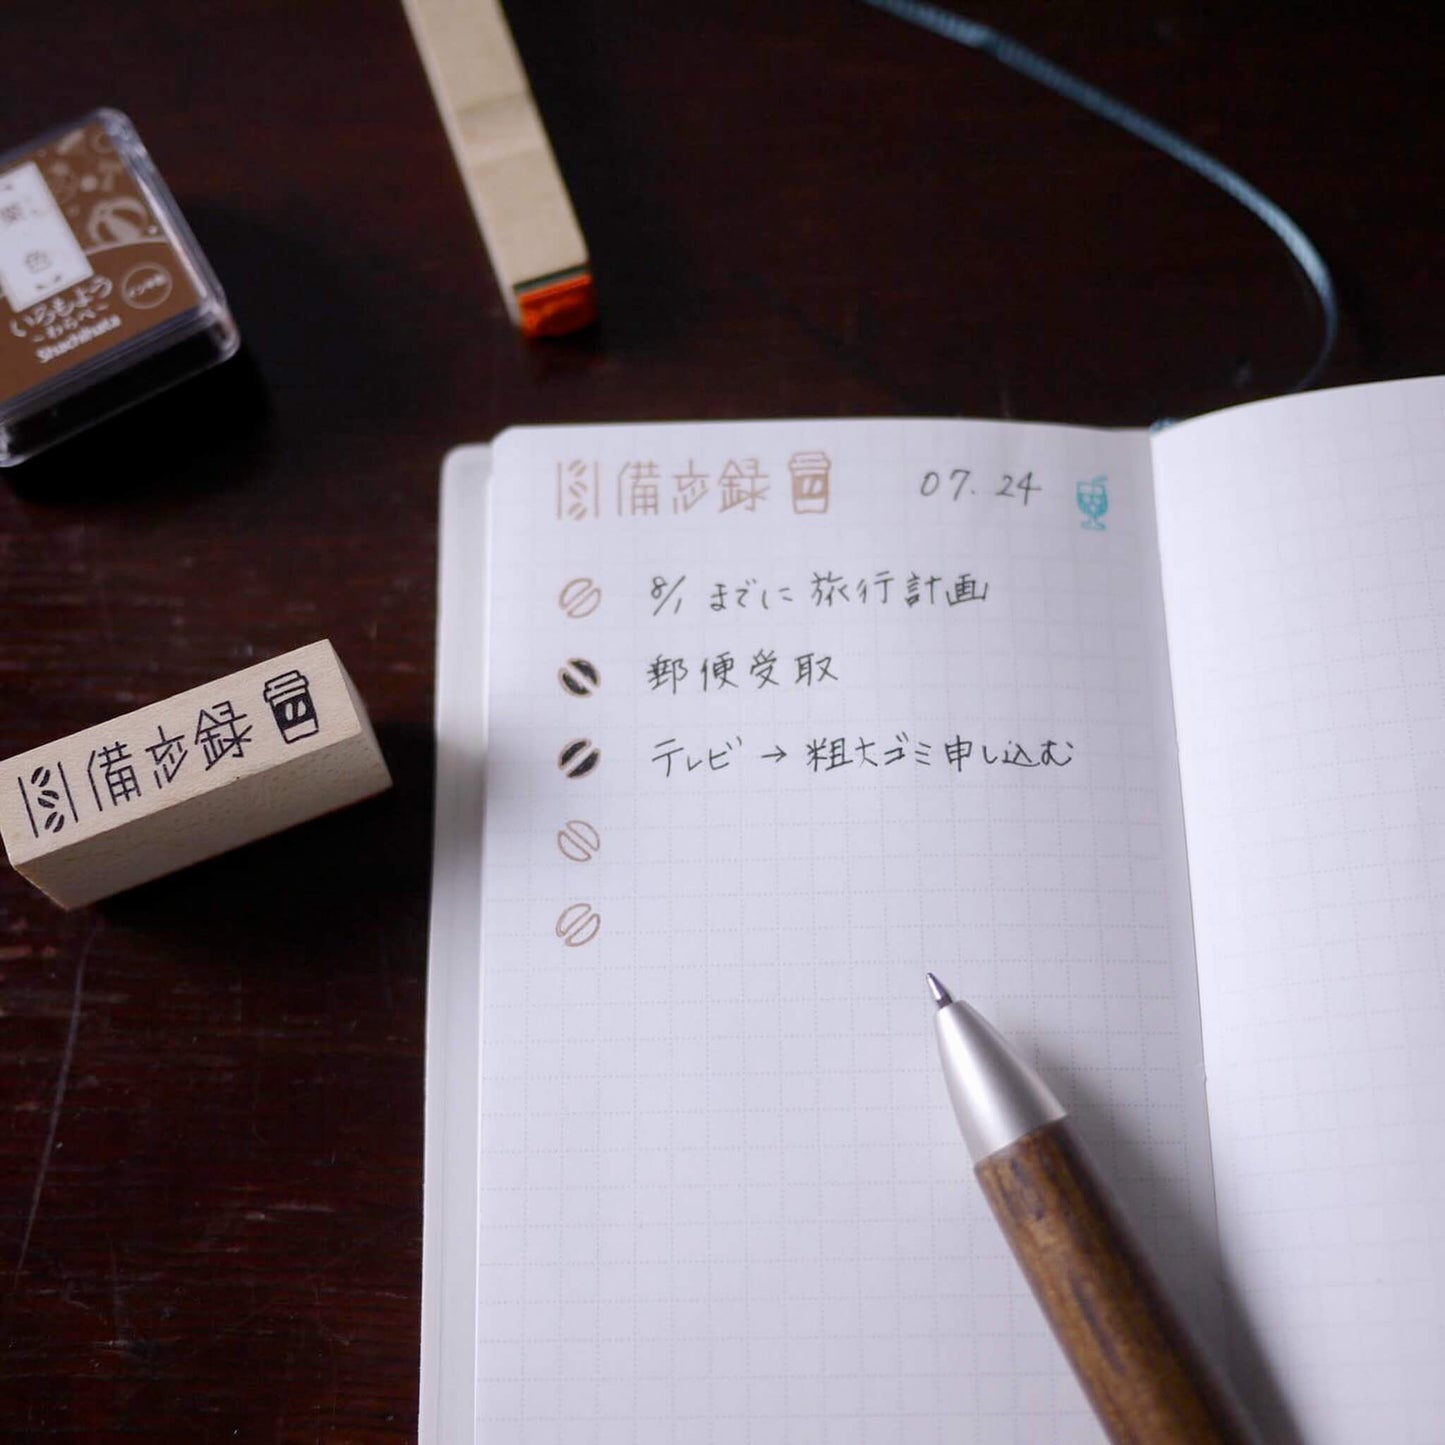 栗色
いろもよう
〜わらべ〜
Shachihata
備忘録
07.24
8/1 までに旅行計画
郵便受取
テレビ → 粗大ゴミ申し込む
備忘録